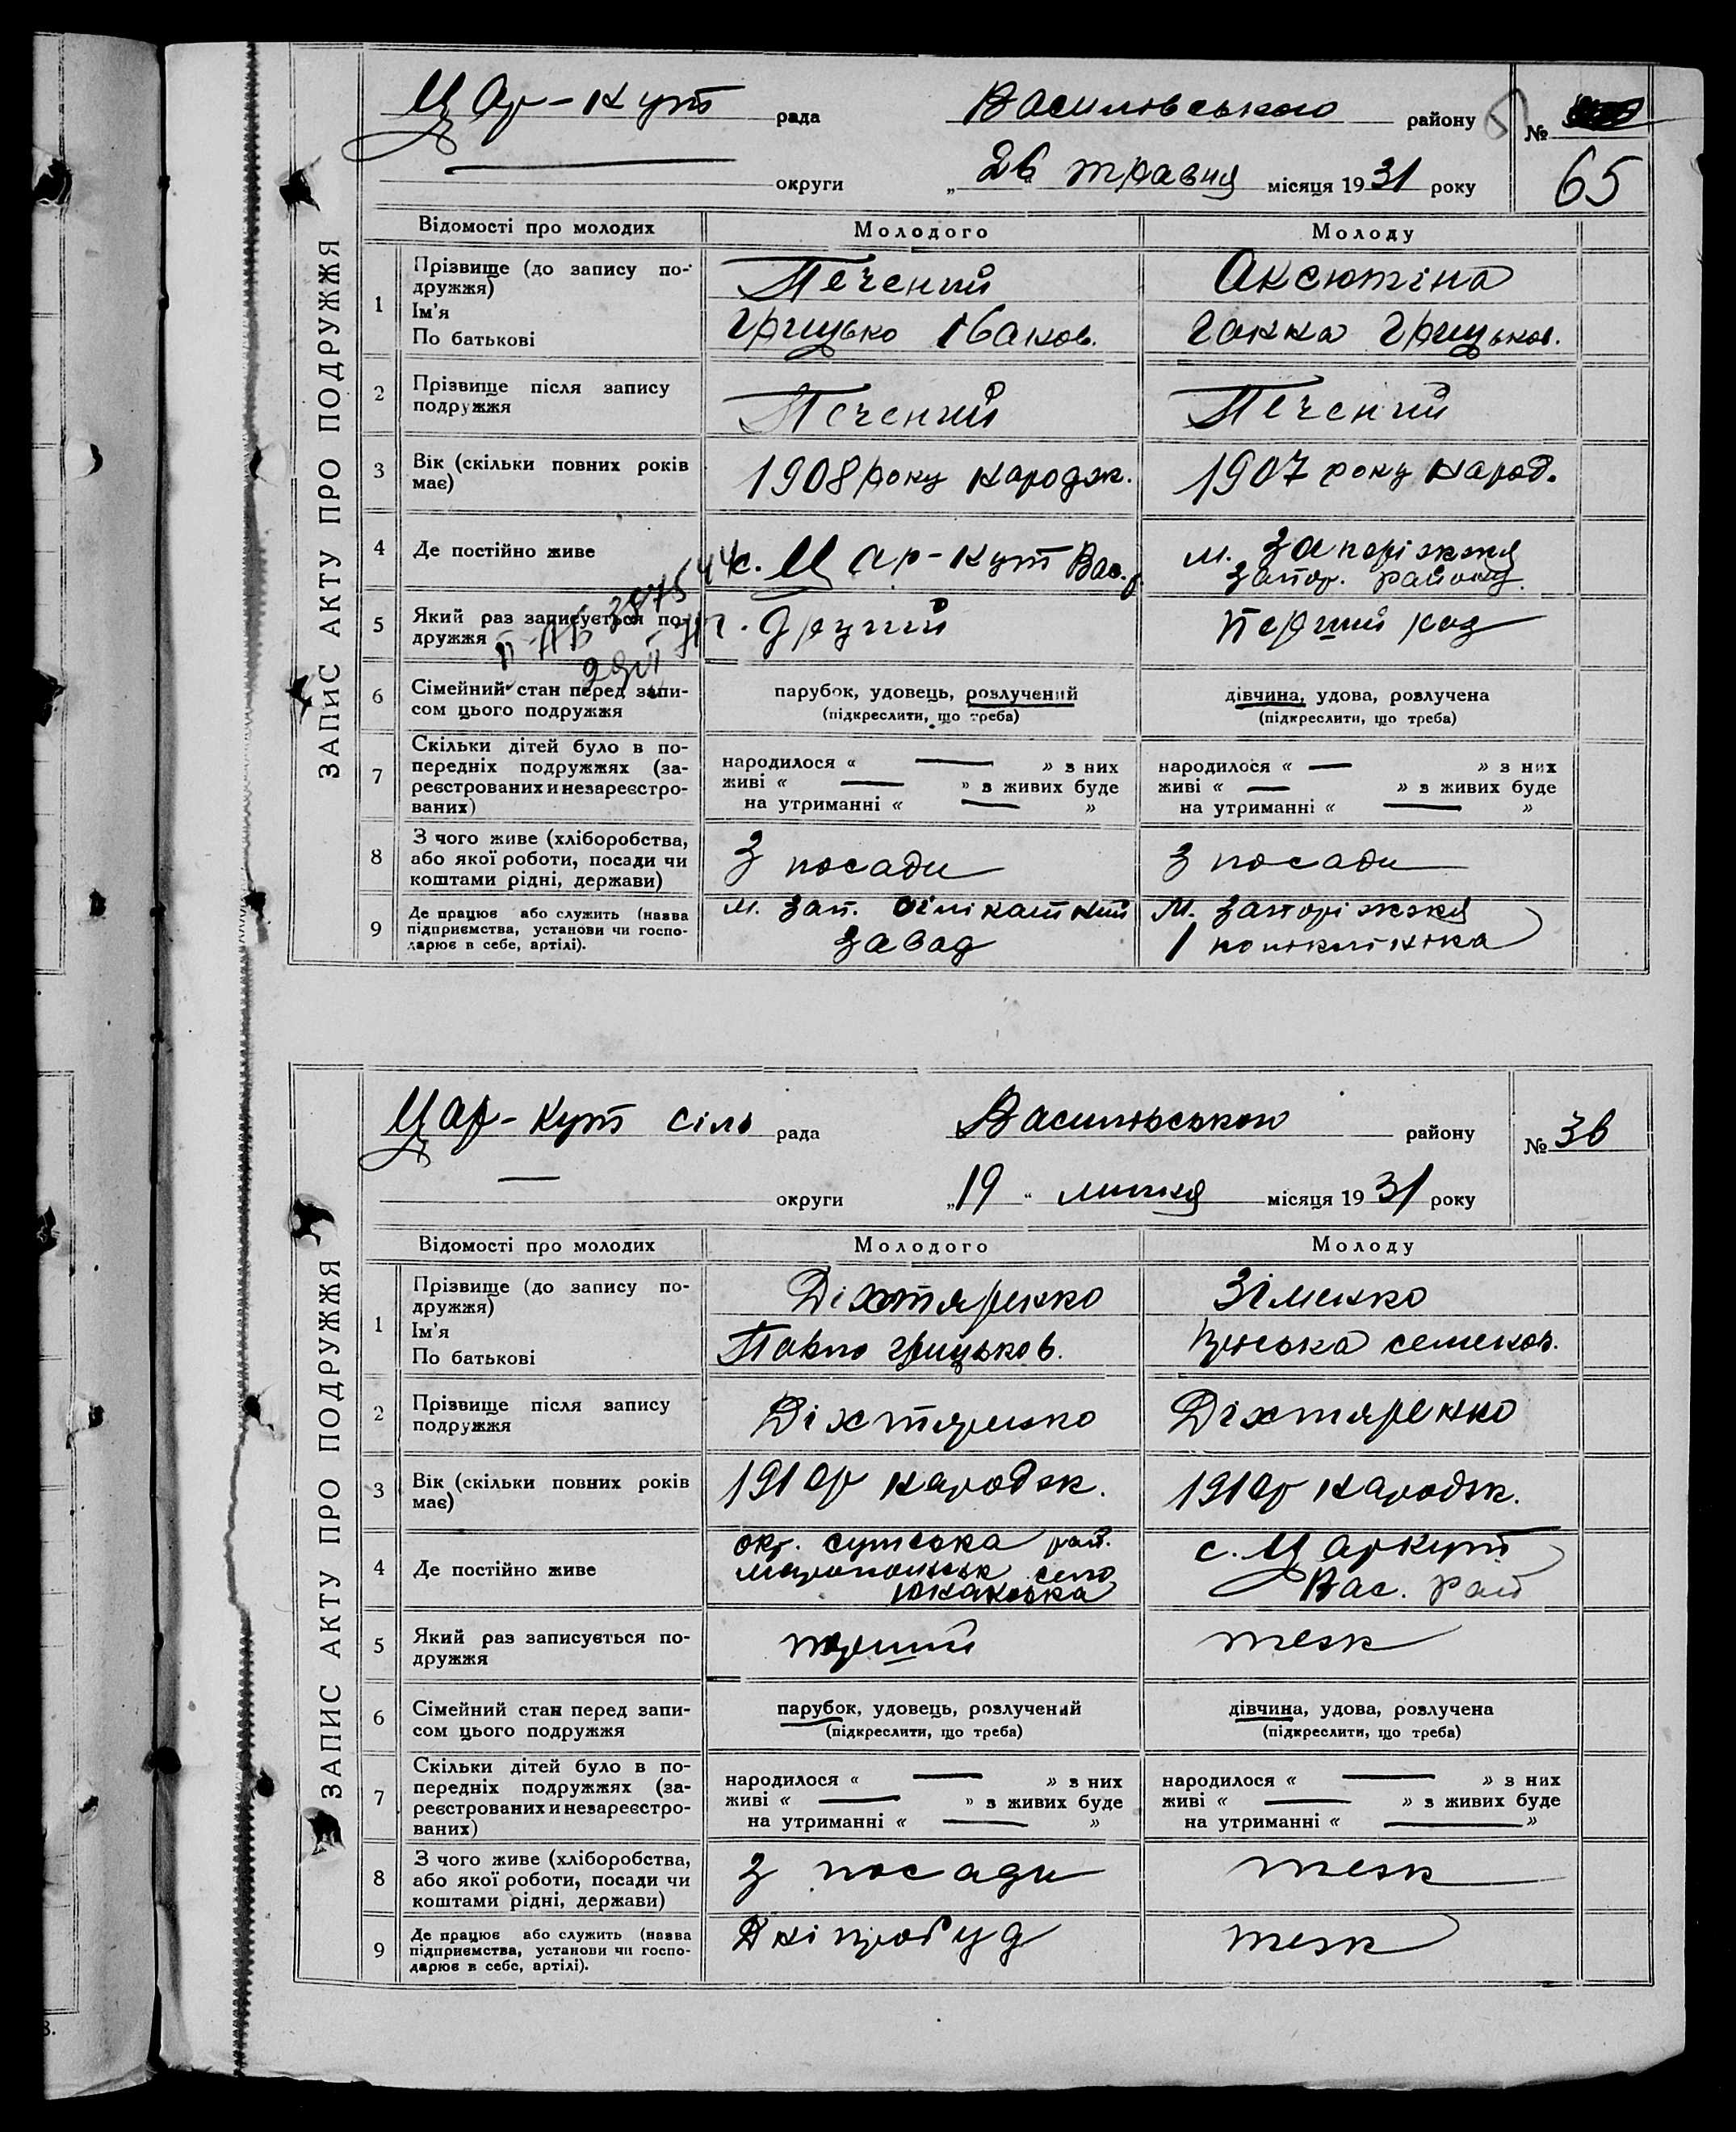 ЗАПИС АКТУ ПРО ПОДРУЖЖЯ
Цар-Кут рада Василівського району №
округи „ 26 травня місяця 1931 року 65
Відомості про молодих Молодого Молоду
1 Прізвище (до запису по-
дружжя) Печений Аксютіна
Ім'я
По батькові Грицько Іванов. Ганна Грицьков.
2 Прізвище після запису
подружжя Печений Печений
3 Вік (скільки повних років
має) 1908 року народж. 1907 року народ.
4 Де постійно живе с. Цар-Кут Вас. р м. Запоріжжя
Запор. району.
5 Який раз записується по-
дружжя Другий Перший раз
6 Сімейний стан перед запи-
сом цього подружжя парубок, удовець, розлучений дівчина, удова, розлучена
(підкреслити, що треба) (підкреслити, що треба)
7 Скільки дітей було в по-
передніх подружжях (за-
реєстрованих и незареєстро-
ваних)
народилося « — » з них народилося « — » з них
живі « — » з живих буде живі « — » з живих буде
на утриманні « — » на утриманні « — »
8 З чого живе (хліборобства,
або якої роботи, посади чи
коштами рідні, держави) З посади З посади
9 Де працює або служить (назва
підприємства, установи чи госпо-
дарює в себе, артілі).
м. Зап. сілікатний м. Запоріжжя
завод 1 поліклініка
ЗАПИС АКТУ ПРО ПОДРУЖЖЯ
Цар-Кут сіль рада Василівського району № 36
— округи „19“ липня місяця 1931 року
Відомості про молодих Молодого Молоду
1 Прізвище (до запису по-
дружжя) Діхтяренко Зіменко
Ім'я
По батькові Павло Грицьков. семенов.
2 Прізвище після запису
подружжя Діхтяренко Діхтяренко
3 Вік (скільки повних років
має) 1910р народж. 1910р народж.
4 Де постійно живе окр. сумська рай. с. Царкут
село Вас. рай
Юнаковка
5 Який раз записується по-
дружжя перший теж
6 Сімейний стан перед запи-
сом цього подружжя парубок, удовець, розлучений дівчина, удова, розлучена
(підкреслити, що треба) (підкреслити, що треба)
7 Скільки дітей було в по-
передніх подружжях (за-
реєстрованих и незареєстро-
ваних)
народилося « — » з них народилося « — » з них
живі « — » з живих буде живі « — » з живих буде
на утриманні « — » на утриманні « — »
8 З чого живе (хліборобства,
або якої роботи, посади чи
коштами рідні, держави) З посади теж
9 Де працює або служить (назва
підприємства, установи чи госпо-
дарює в себе, артілі). Дніпробуд теж